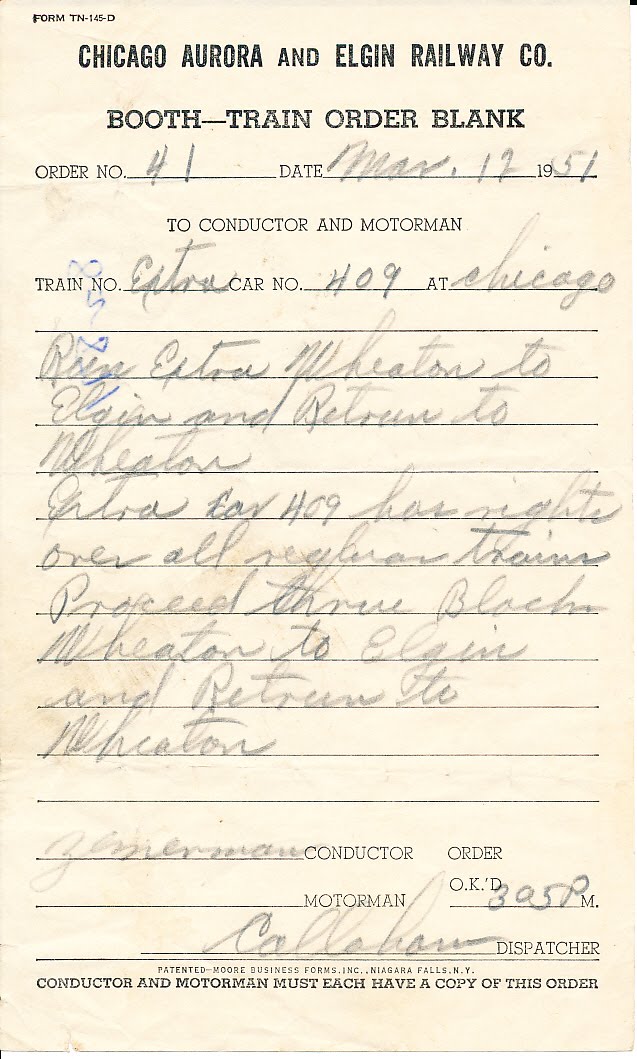 FORM TN-145-D
CHICAGO AURORA AND ELGIN RAILWAY CO.
BOOTH—TRAIN ORDER BLANK
ORDER NO. 41 DATE Mar. 17 1951
TO CONDUCTOR AND MOTORMAN
TRAIN NO. Extra CAR NO. 409 AT Chicago
Run Extra Wheaton to
Elgin and Retrun to
Wheaton
Extra Car 409 has rights
over all regluar trains
Proceed thrue Block
Wheaton to Elgin
and Retrun to
Wheaton
Zemerman CONDUCTOR ORDER
O.K.'D 305 P M.
MOTORMAN
Callahan DISPATCHER
PATENTED—MOORE BUSINESS FORMS, INC., NIAGARA FALLS, N.Y.
CONDUCTOR AND MOTORMAN MUST EACH HAVE A COPY OF THIS ORDER